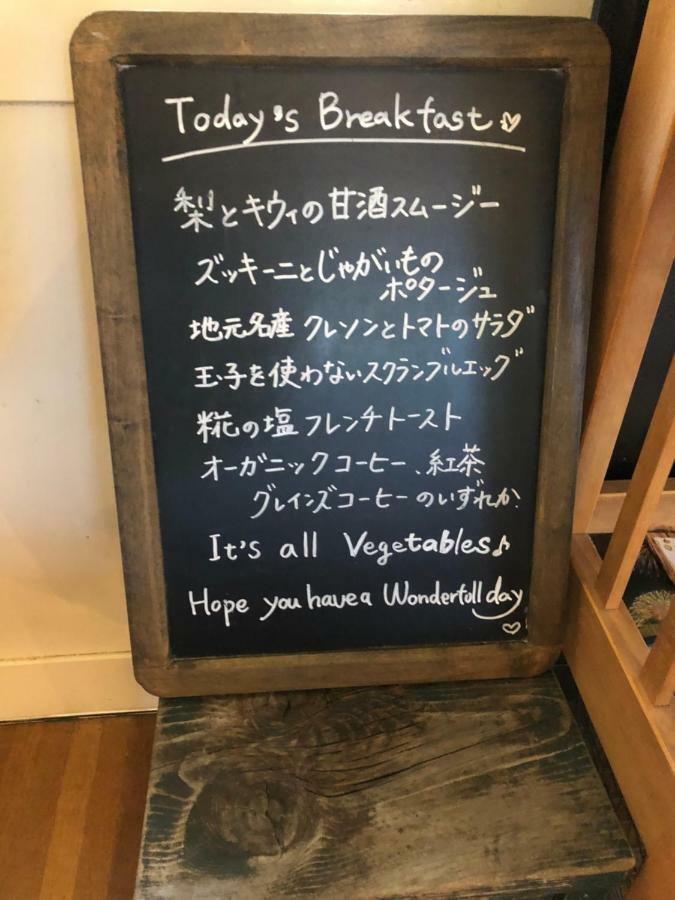 Today's Breakfast♡
梨とキウィの甘酒スムージー
ズッキーニとじゃがいもの
ポタージュ
地元名産 クレソンとトマトのサラダ
玉子を使わないスクランブルエッグ
糀の塩フレンチトースト
オーガニックコーヒー、紅茶
グレインズコーヒーのいずれか
It's all Vegetables♪
Hope you have a Wonderfull day
♡